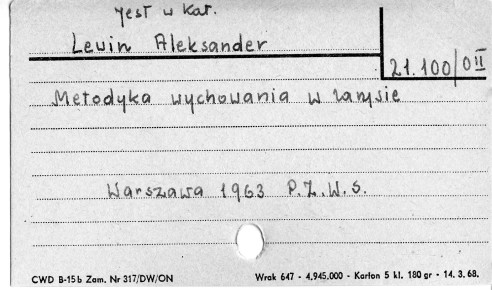 jest w kat.
Lewin Aleksander
21.100/0II
Metodyka wychowania w zarysie
Warszawa 1963 P.Z.W.S.
CWD B-15b Zam. Nr 317/DW/ON Wrak 647 - 4,945.000 - Karton 5 kl. 180 gr - 14. 3. 68.